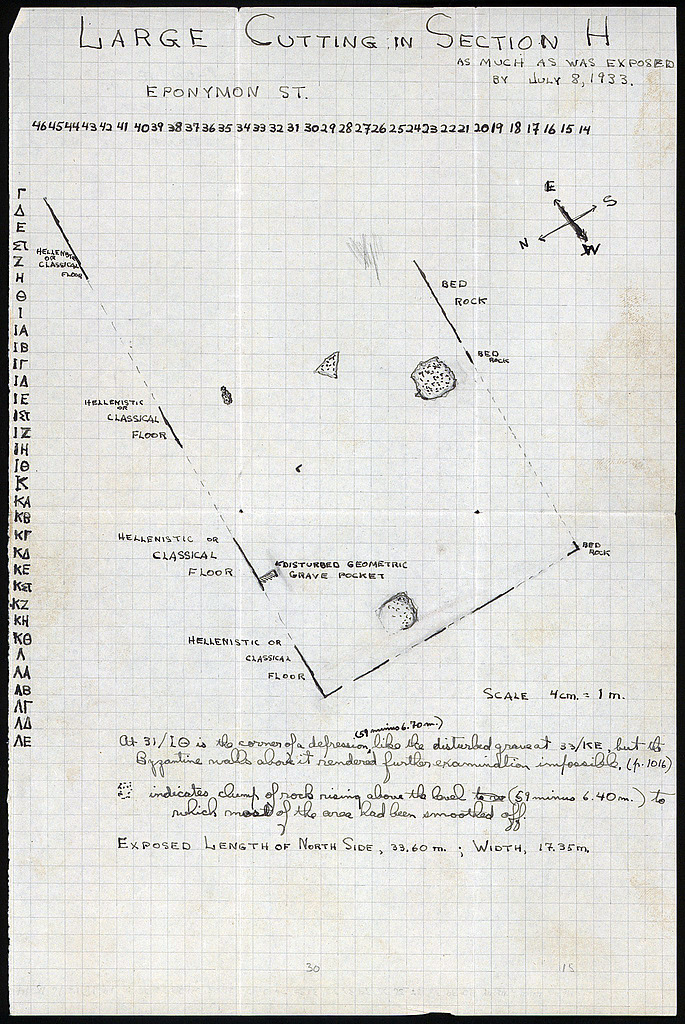 LARGE CUTTING IN SECTION H
AS MUCH AS WAS EXPOSED
BY JULY 8, 1933.
EPONYMON ST.
46 45 44 43 42 41 40 39 38 37 36 35 34 33 32 31 30 29 28 27 26 25 24 23 22 21 20 19 18 17 16 15 14
E
S
N
W
Γ
Δ
Ε
ΣΤ
Ζ
Η
Θ
Ι
ΙΑ
ΙΒ
ΙΓ
ΙΔ
ΙΕ
ΙΣΤ
ΙΖ
ΙΗ
ΙΘ
Κ
ΚΑ
ΚΒ
ΚΓ
ΚΔ
ΚΕ
ΚΣΤ
ΚΖ
ΚΗ
ΚΘ
Λ
ΛΑ
ΛΒ
ΛΓ
ΛΔ
ΛΕ
HELLENISTIC
OR
CLASSICAL
FLOOR
BED
ROCK
BED
ROCK
HELLENISTIC
OR
CLASSICAL
FLOOR
HELLENISTIC OR
CLASSICAL
FLOOR
DISTURBED GEOMETRIC
GRAVE POCKET
BED
ROCK
HELLENISTIC OR
CLASSICAL
FLOOR
SCALE 4cm. = 1 m.
(59 minus 6.70 m.)
At 31/ΙΘ is the corner of a depression, like the disturbed grave at 33/ΚΕ, but the
Byzantine walls above it rendered further examination impossible. (p. 1016)
indicates clump of rock rising above the level (59 minus 6.40 m.) to
which most of the area had been smoothed off.
EXPOSED LENGTH OF NORTH SIDE, 33.60 m. ; WIDTH, 17.35 m.
30 15